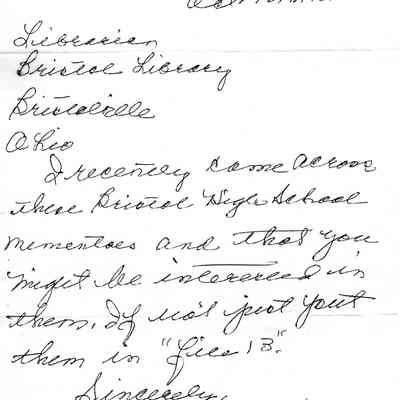 Librarian
Bristol Library
Bristolville
Ohio
I recently came across
these Bristol High School
mementoes and that you
might be interested in
them. If not just put
them in "file 13".
Sincerely,